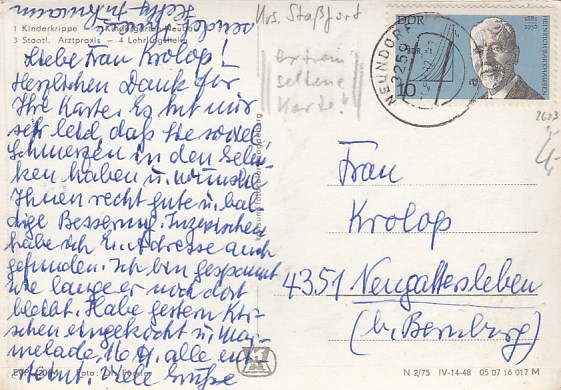 sende
Krs. Staßfurt
1 Kinderkrippe
3 Staatl. Arztpraxis — 4 Lehrlingsheim
Liebe Frau Krolop!
Herzlichen Dank für
Ihre Karte. Es tut mir
sehr leid, daß Sie soviel
Schmerzen in den Gelen-
ken haben u. wünsche
Ihnen recht gute u. bal-
dige Besserung. Inzwischen
habe ich Adresse auch
gefunden. Ich bin gespannt
wie lange er noch dort
bleibt. Habe gestern Kir-
schen eingekocht u. Mar-
melade, alle ent-
steint. Viele Grüße
extrem
seltene
Karte!
DDR
10
HEINRICH BARKHAUSEN
1881
1956
NEUNDORF
3259
a
Frau
Krolop
4351 Neugattersleben
(b. Bernburg)
Foto:
N 2/75 IV-14-48 05 07 16 017 M